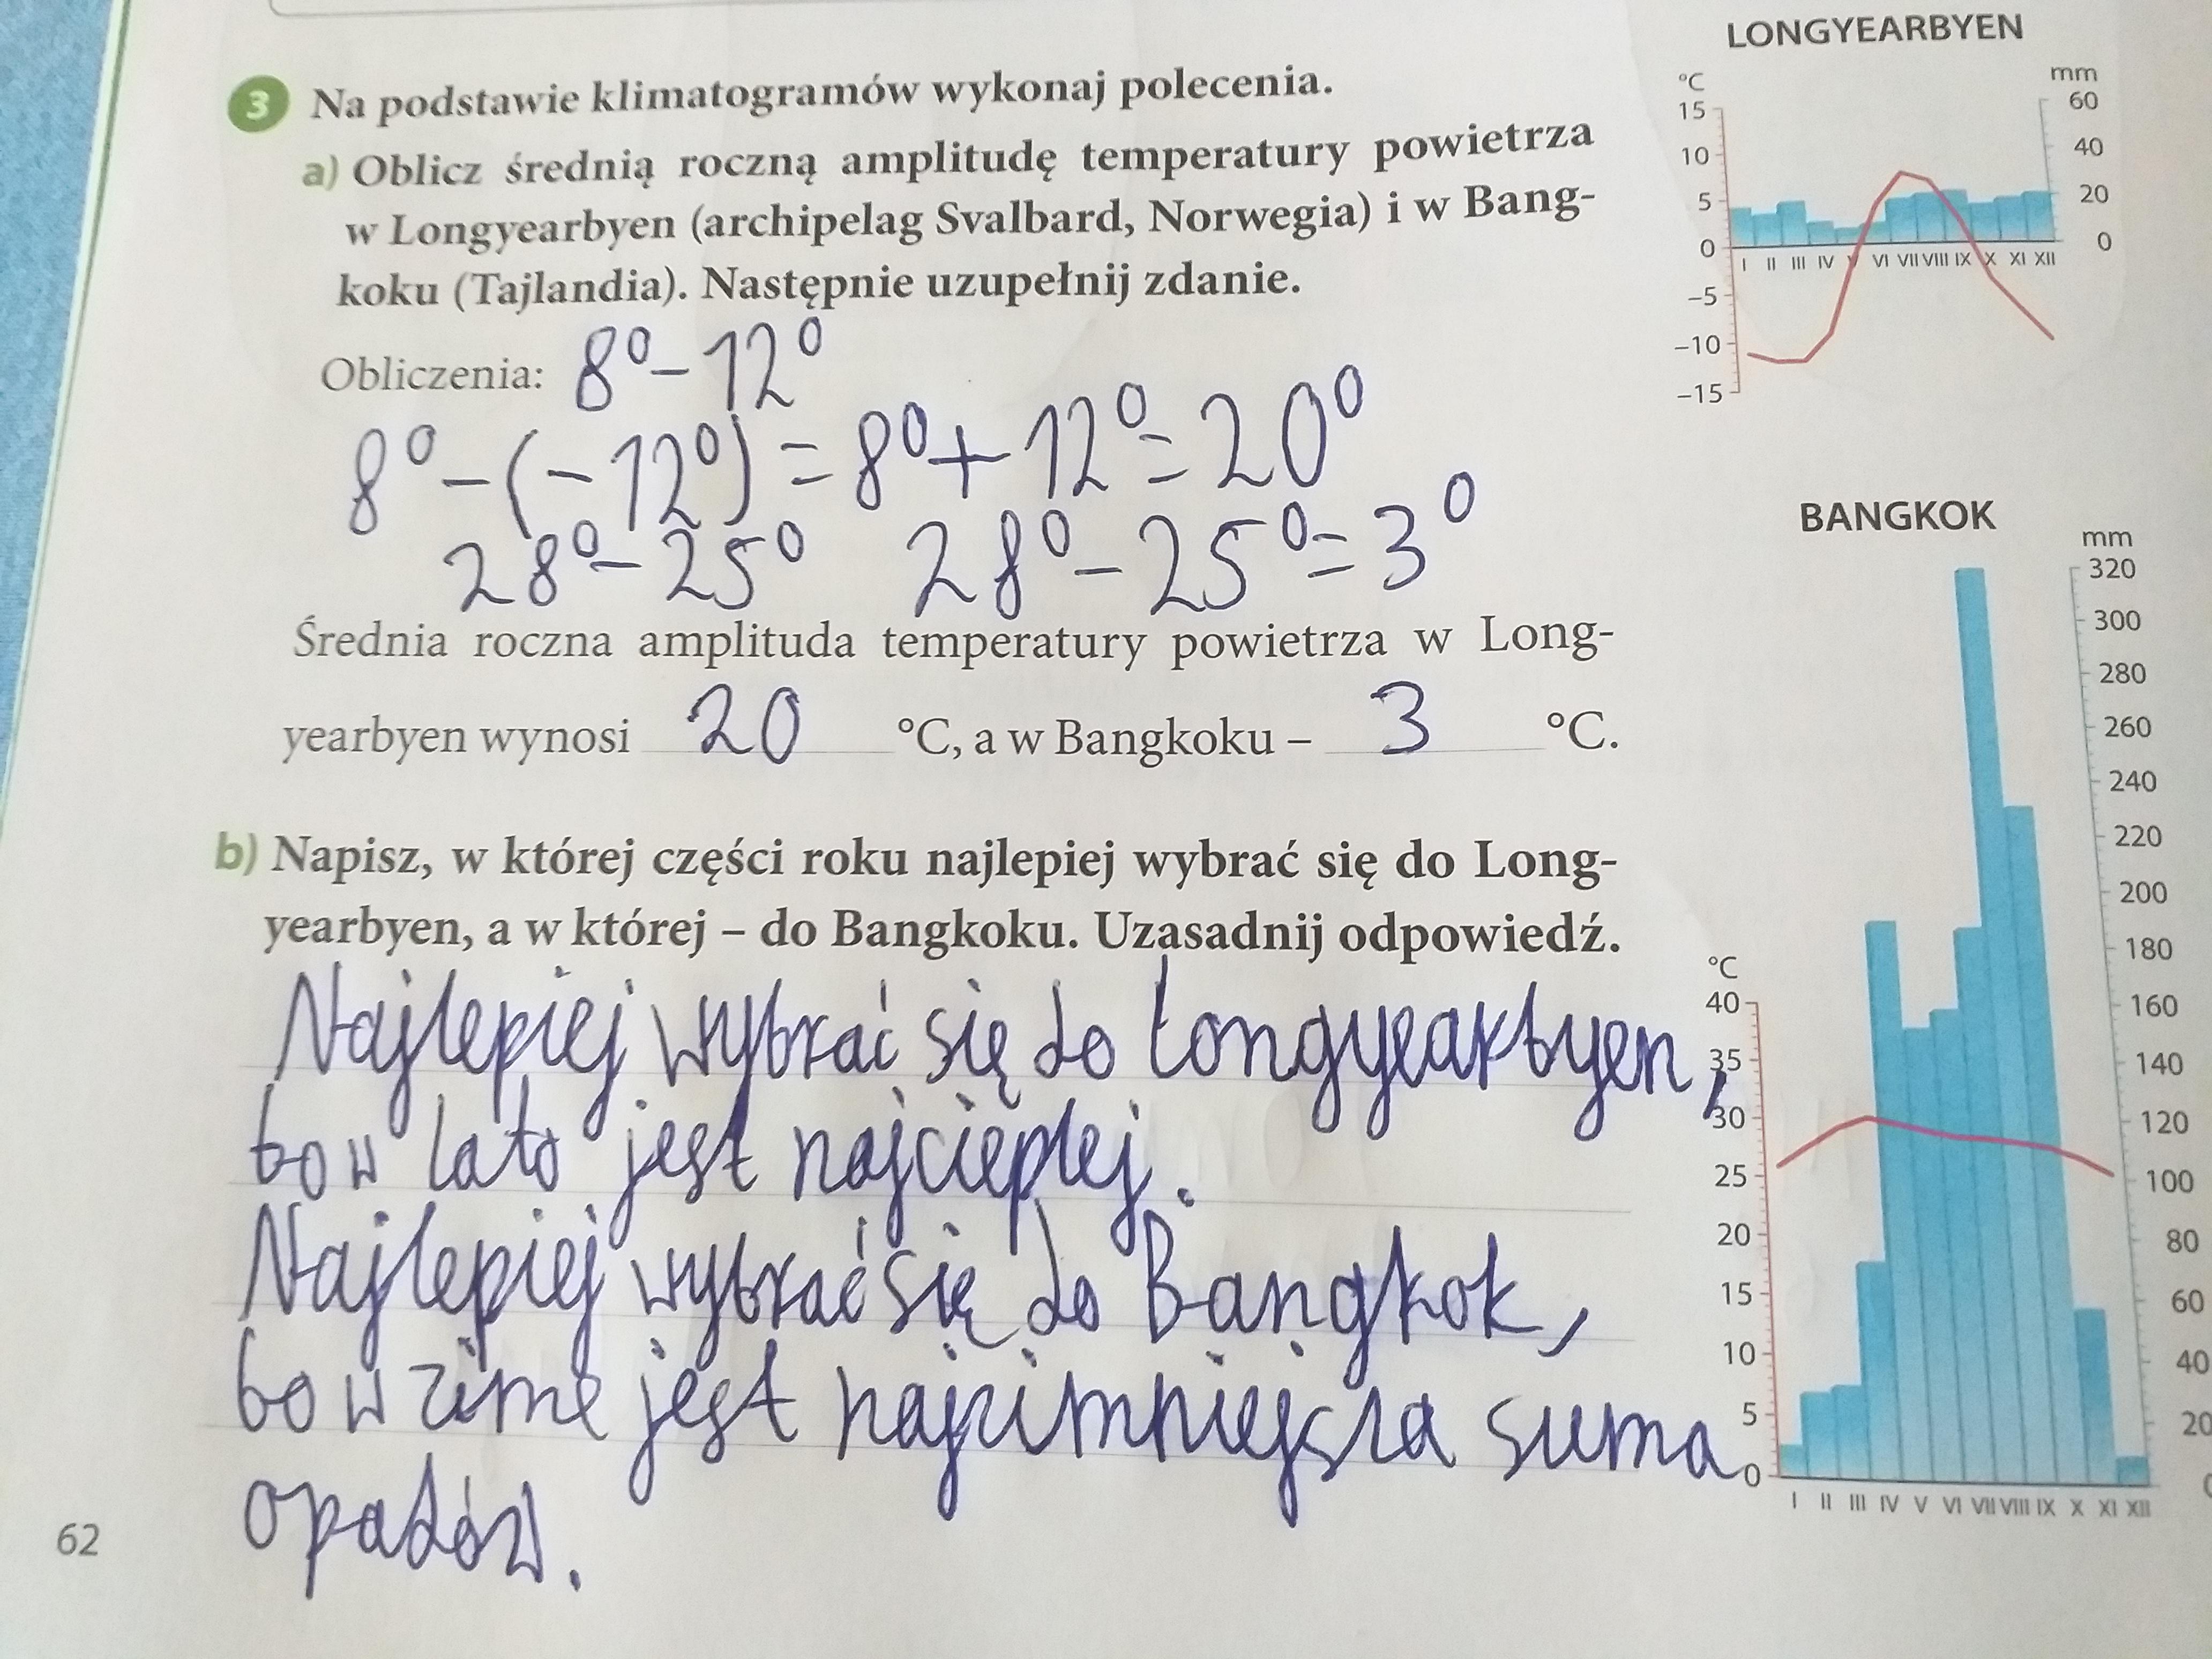 3 Na podstawie klimatogramów wykonaj polecenia.
a) Oblicz średnią roczną amplitudę temperatury powietrza
w Longyearbyen (archipelag Svalbard, Norwegia) i w Bang-
koku (Tajlandia). Następnie uzupełnij zdanie.
Obliczenia: 8° - 12°
8° - (-12°) = 8° + 12° = 20°
28° - 25° 28° - 25° = 3°
Średnia roczna amplituda temperatury powietrza w Long-
yearbyen wynosi 20 °C, a w Bangkoku – 3 °C.
b) Napisz, w której części roku najlepiej wybrać się do Long-
yearbyen, a w której – do Bangkoku. Uzasadnij odpowiedź.
Najlepiej wybrać się do Longyearbyen,
bo w lato jest najcieplej.
Najlepiej wybrać się do Bangkok,
bo w zime jest najzimniejsza suma
opadów.
62
LONGYEARBYEN
°C mm
15 60
10 40
5 20
0 0
I II III IV V VI VII VIII IX X XI XII
-5
-10
-15
BANGKOK
mm
320
300
280
260
240
220
200
180
°C
40 160
35 140
30 120
25 100
20 80
15 60
10 40
5 20
0 0
I II III IV V VI VII VIII IX X XI XII